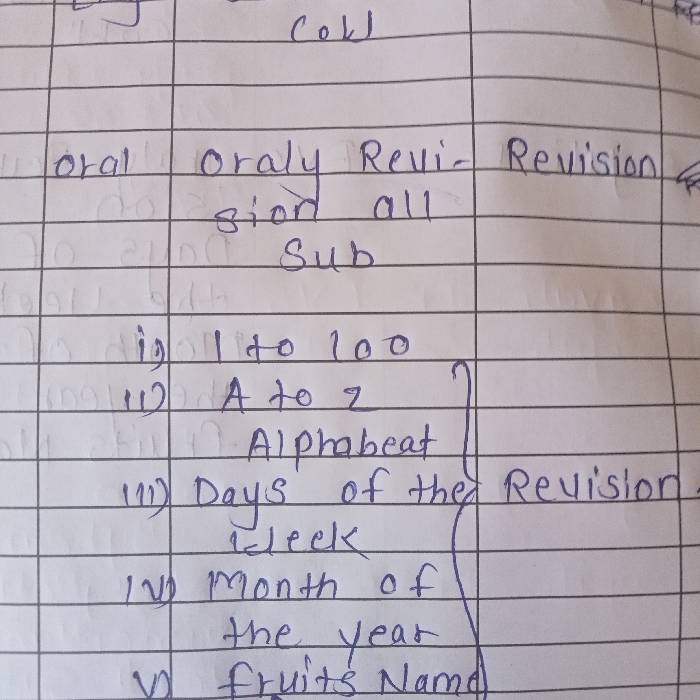 Cow
oral oraly Revi- Revision
sion all
Sub
i) 1 to 100
ii) A to Z
Alphabeat
iii) Days of the Revision
Week
iv) Month of
the year
v) fruits Name